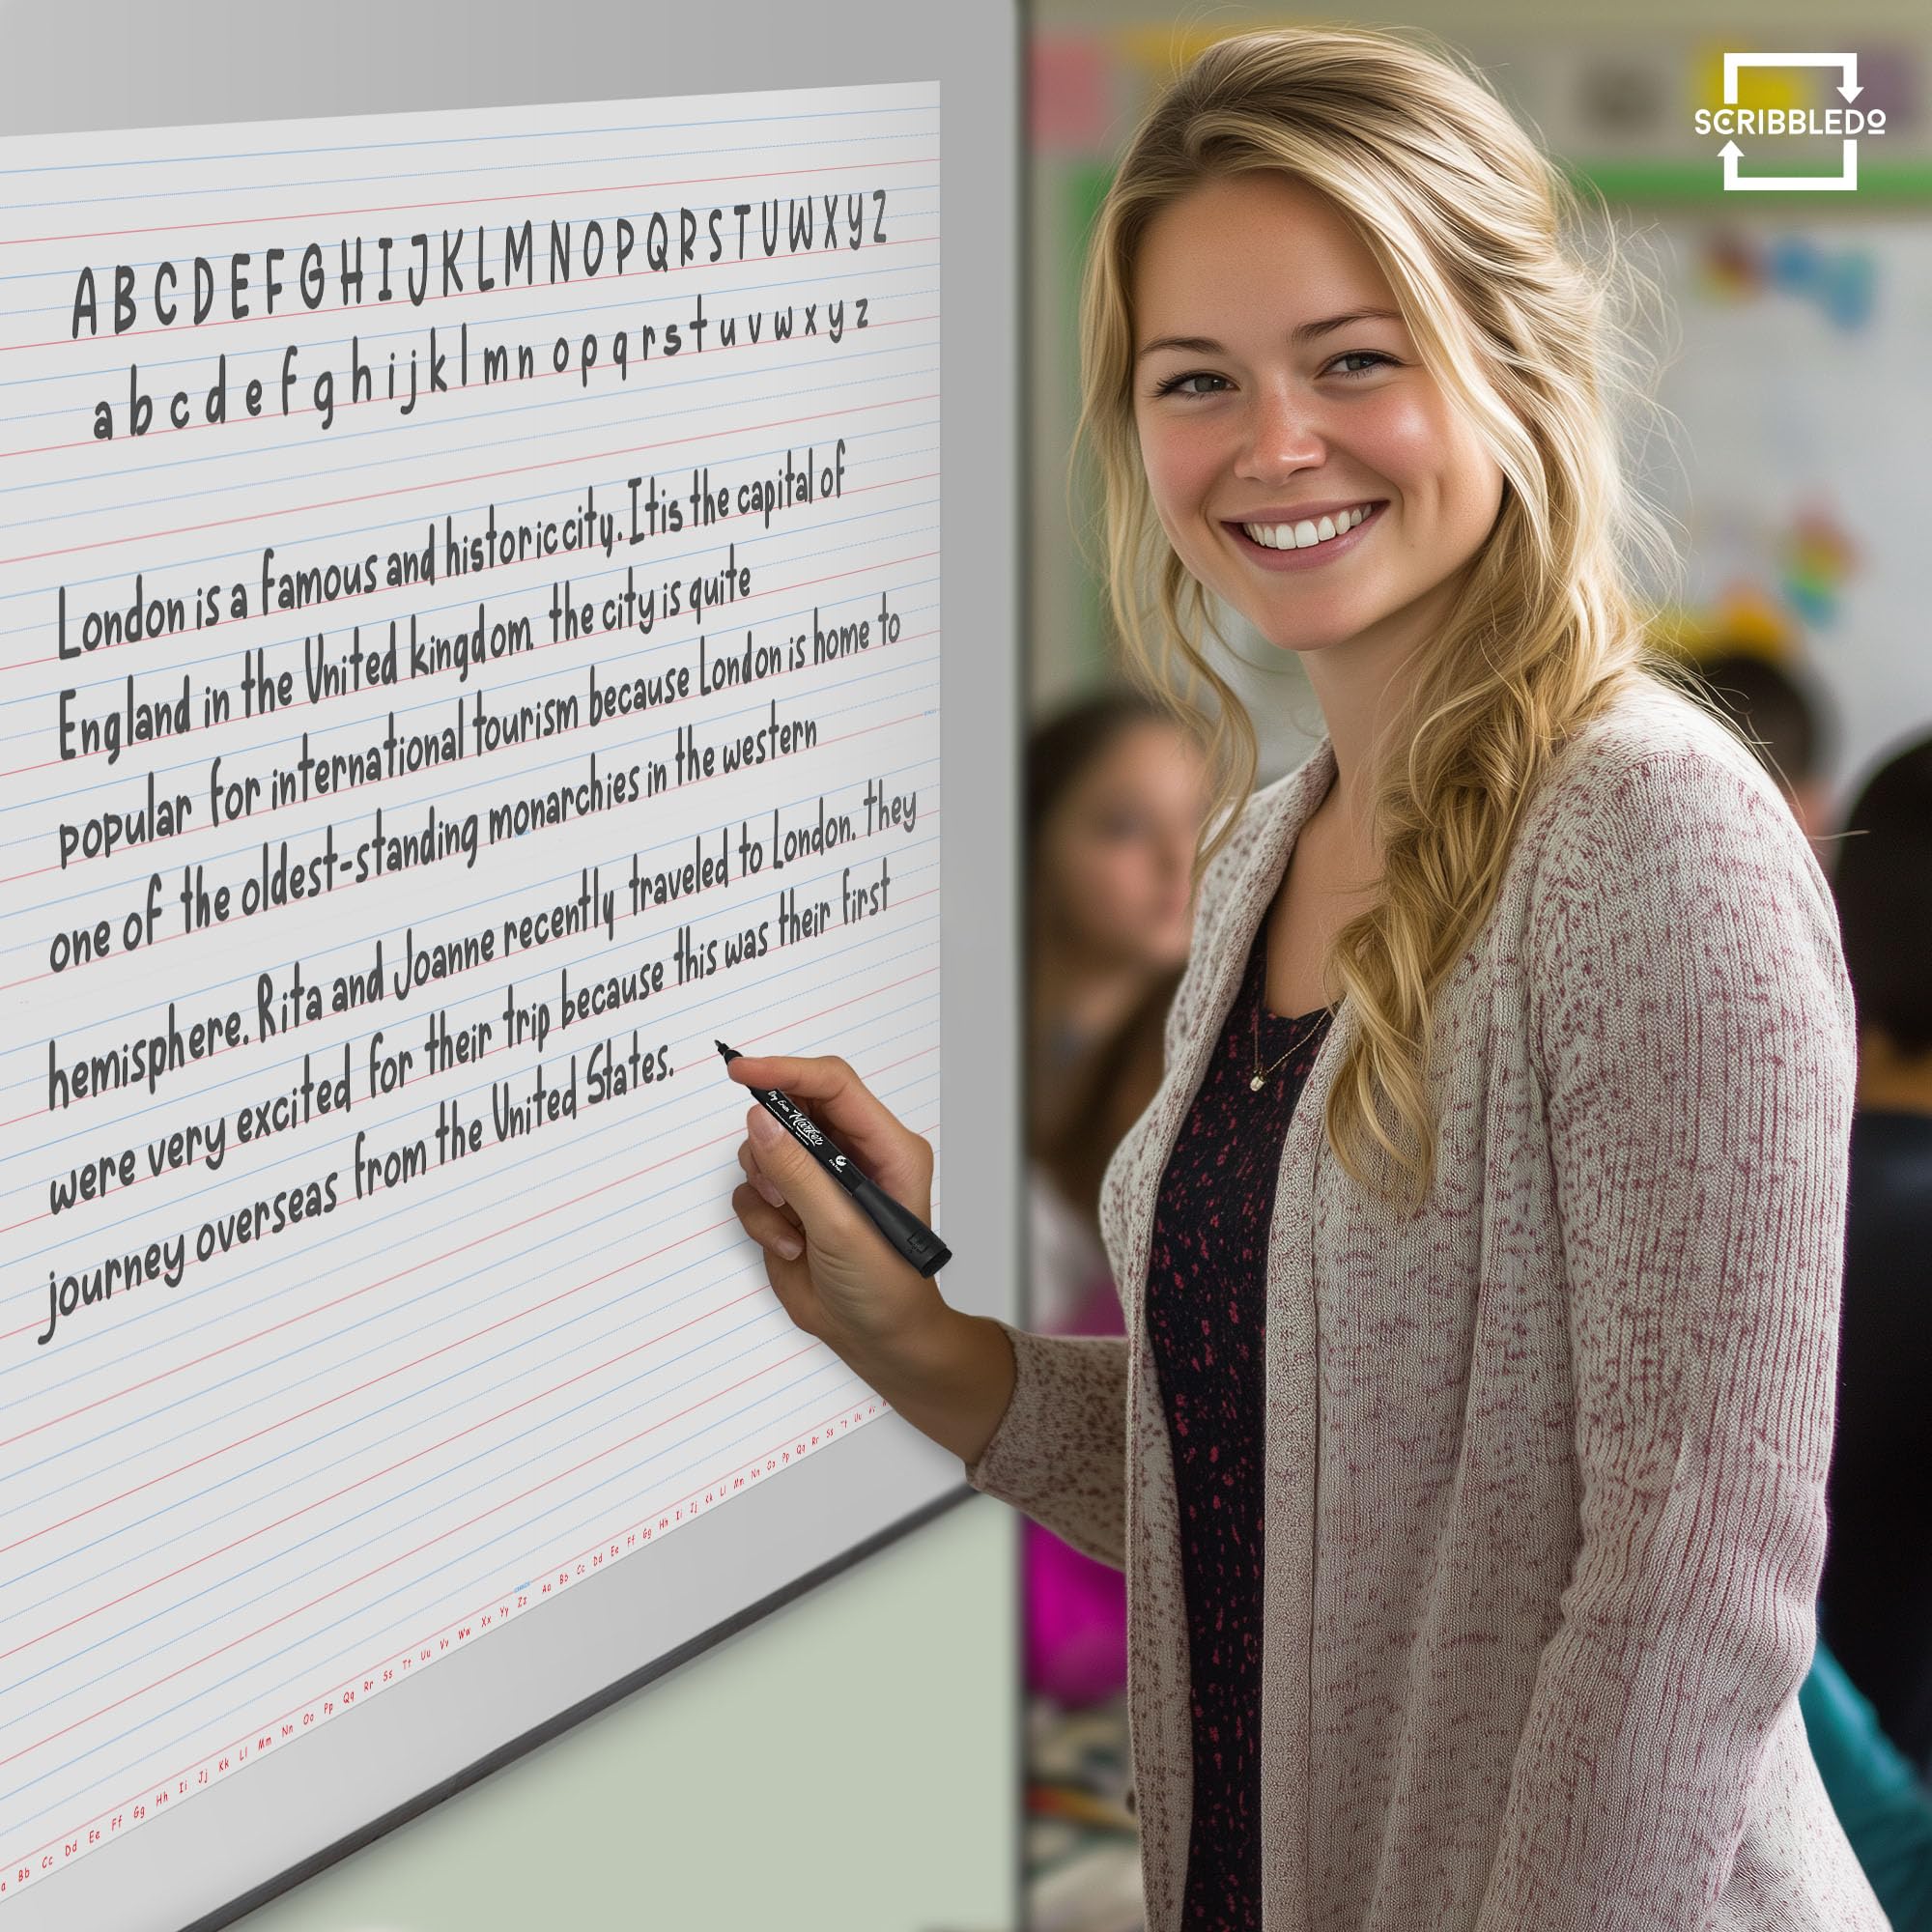 SCRIBBLEDO
A B C D E F G H I J K L M N O P Q R S T U W X Y Z
a b c d e f g h i j k l m n o p q r s t u v w x y z
London is a famous and historic city. It is the capital of
England in the United kingdom. the city is quite
popular for international tourism because London is home to
one of the oldest-standing monarchies in the western
hemisphere. Rita and Joanne recently traveled to London. they
were very excited for their trip because this was their first
journey overseas from the United States.
Marker
Bb Cc Dd Ee Ff Gg Hh Ii Jj Kk Ll Mm Nn Oo Pp Qq Rr Ss Tt Uu Vv Ww Xx Yy Zz Aa Bb Cc Dd Ee Ff Gg Hh Ii Jj Kk Ll Mm Nn Oo Pp Qq Rr Ss Tt Uu Vv